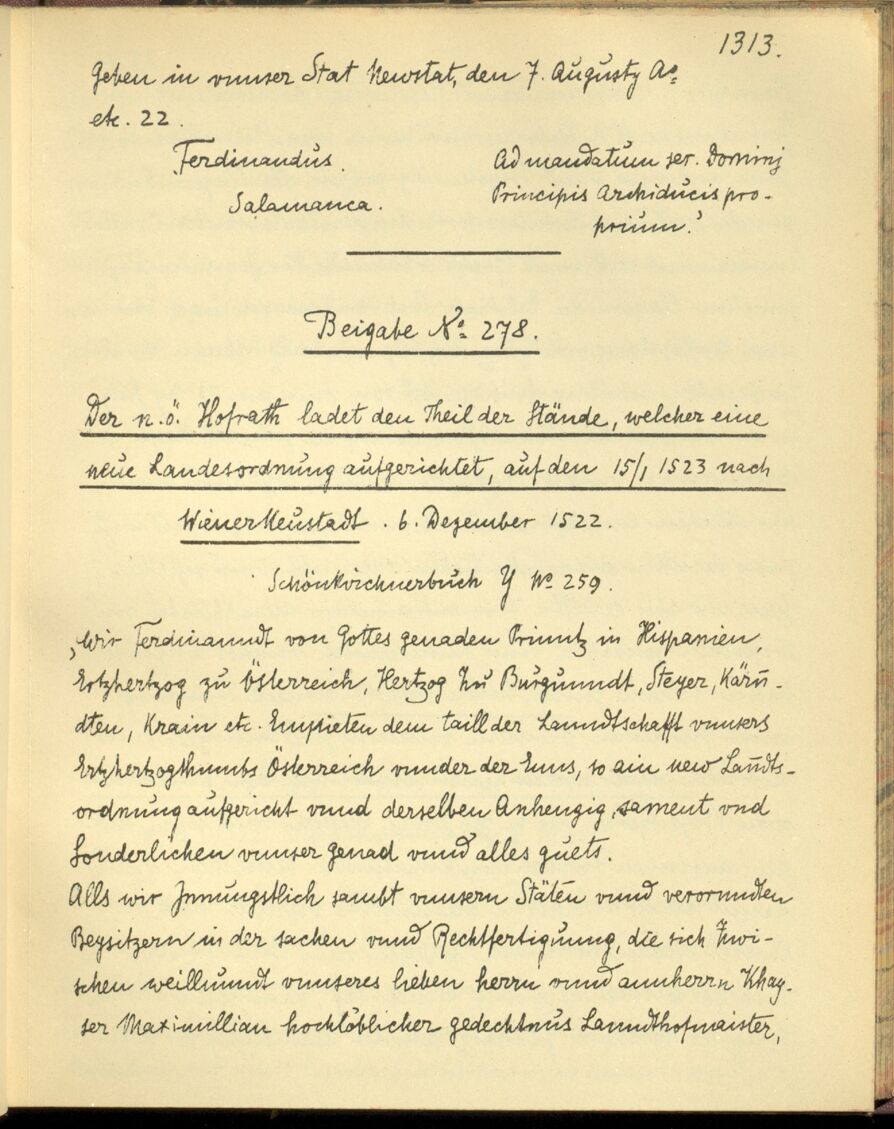 1313.
Geben in vnnser Stat Newstat, den 7. Augusty Ao
etc. 22.
Ferdinandus.
Salamanca.
Ad mandatum ser. Dominj
Principis Archiducis pro-
prium."
Beigabe No 278.
Der n.ö. Hofrath ladet den Theil der Stände, welcher eine
neue Landesordnung aufgerichtet, auf den 15/1 1523 nach
Wiener Neustadt. 6. Dezember 1522.
Schönkirchnerbuch Y No 259.
„Wir Ferdinanndt von Gottes genaden Prinntz in Hispanien,
Ertzhertzog zu Österreich, Hertzog Zu Burgunndt, Steyer, Kärn-
dten, Krain etc. Empieten dem taill der Lanndtschafft vnnsers
Ertzhertzogthumbs Österreich vnnder der Enns, so ain new Lanndts-
ordnung aufgericht vnnd derselben Anhengig, sament vnd
Sonderlichen vnnser genad vnnd alles guets.
Alls wir Jnnungstlich sambt vnnsern Stäten vnnd verorndten
Beysitzern in der sachen vnnd Rechtfertigunng, die sich Zwi-
schen weillunndt vnnseres lieben herrn vnnd annherrn Khay-
ser Maximillian hochlöblicher gedechtnus Lanndthofmaister,